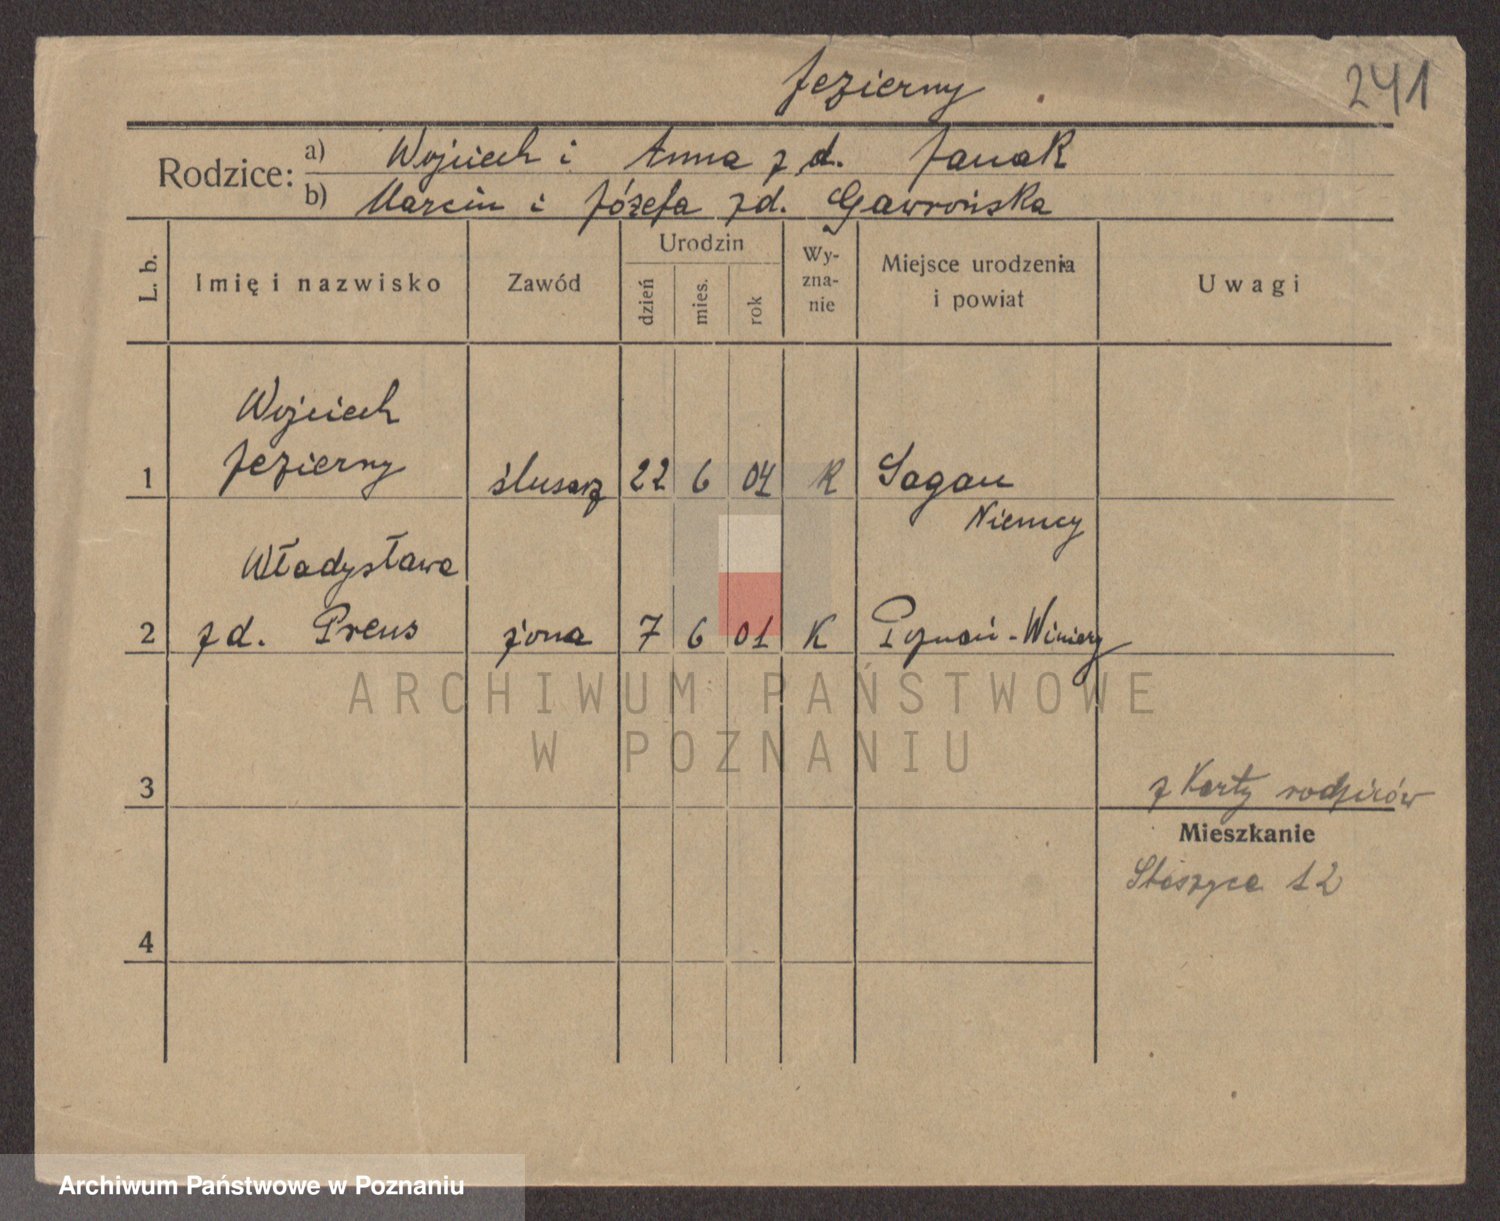 Jezierny
241
Rodzice: a) Wojciech i Anna z d. Janak
b) Marcin i Józefa z d. Gawrońska
L. b.
Imię i nazwisko
Zawód
Urodzin
dzień
mies.
rok
Wy-
zna-
nie
Miejsce urodzenia
i powiat
Uwagi
Wojciech
1 Jezierny ślusarz 22 6 04 K Sagan
Niemcy
Władysława
2 z d. Preus żona 7 6 01 K Poznań-Winiary
ARCHIWUM PAŃSTWOWE
W POZNANIU
3
z Karty rodziców
Mieszkanie
12
4
Archiwum Państwowe w Poznaniu